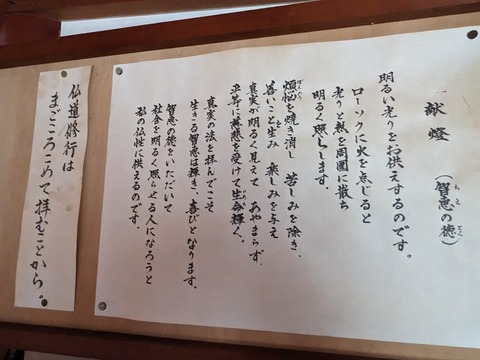 献燈 (智恵の徳)
明るい光りをお供えするのです。
ローソクに火を点じると
光りと熱を周囲に散ち
明るく照らします。
煩悩を焼き消し 苦しみを除き、
善いこと生み 楽しみを与え
真実が明るく見えて あやまらず、
平等に慈悲を受けて生命輝く。
真実の法を拝んでこそ
生きる智恵は輝き、喜びとなります。
智恵の徳をいただいて
社会を明るく照らせる人になろうと
私の仏性に供えるのです。
仏道修行は
まごころこめて拝むことから。